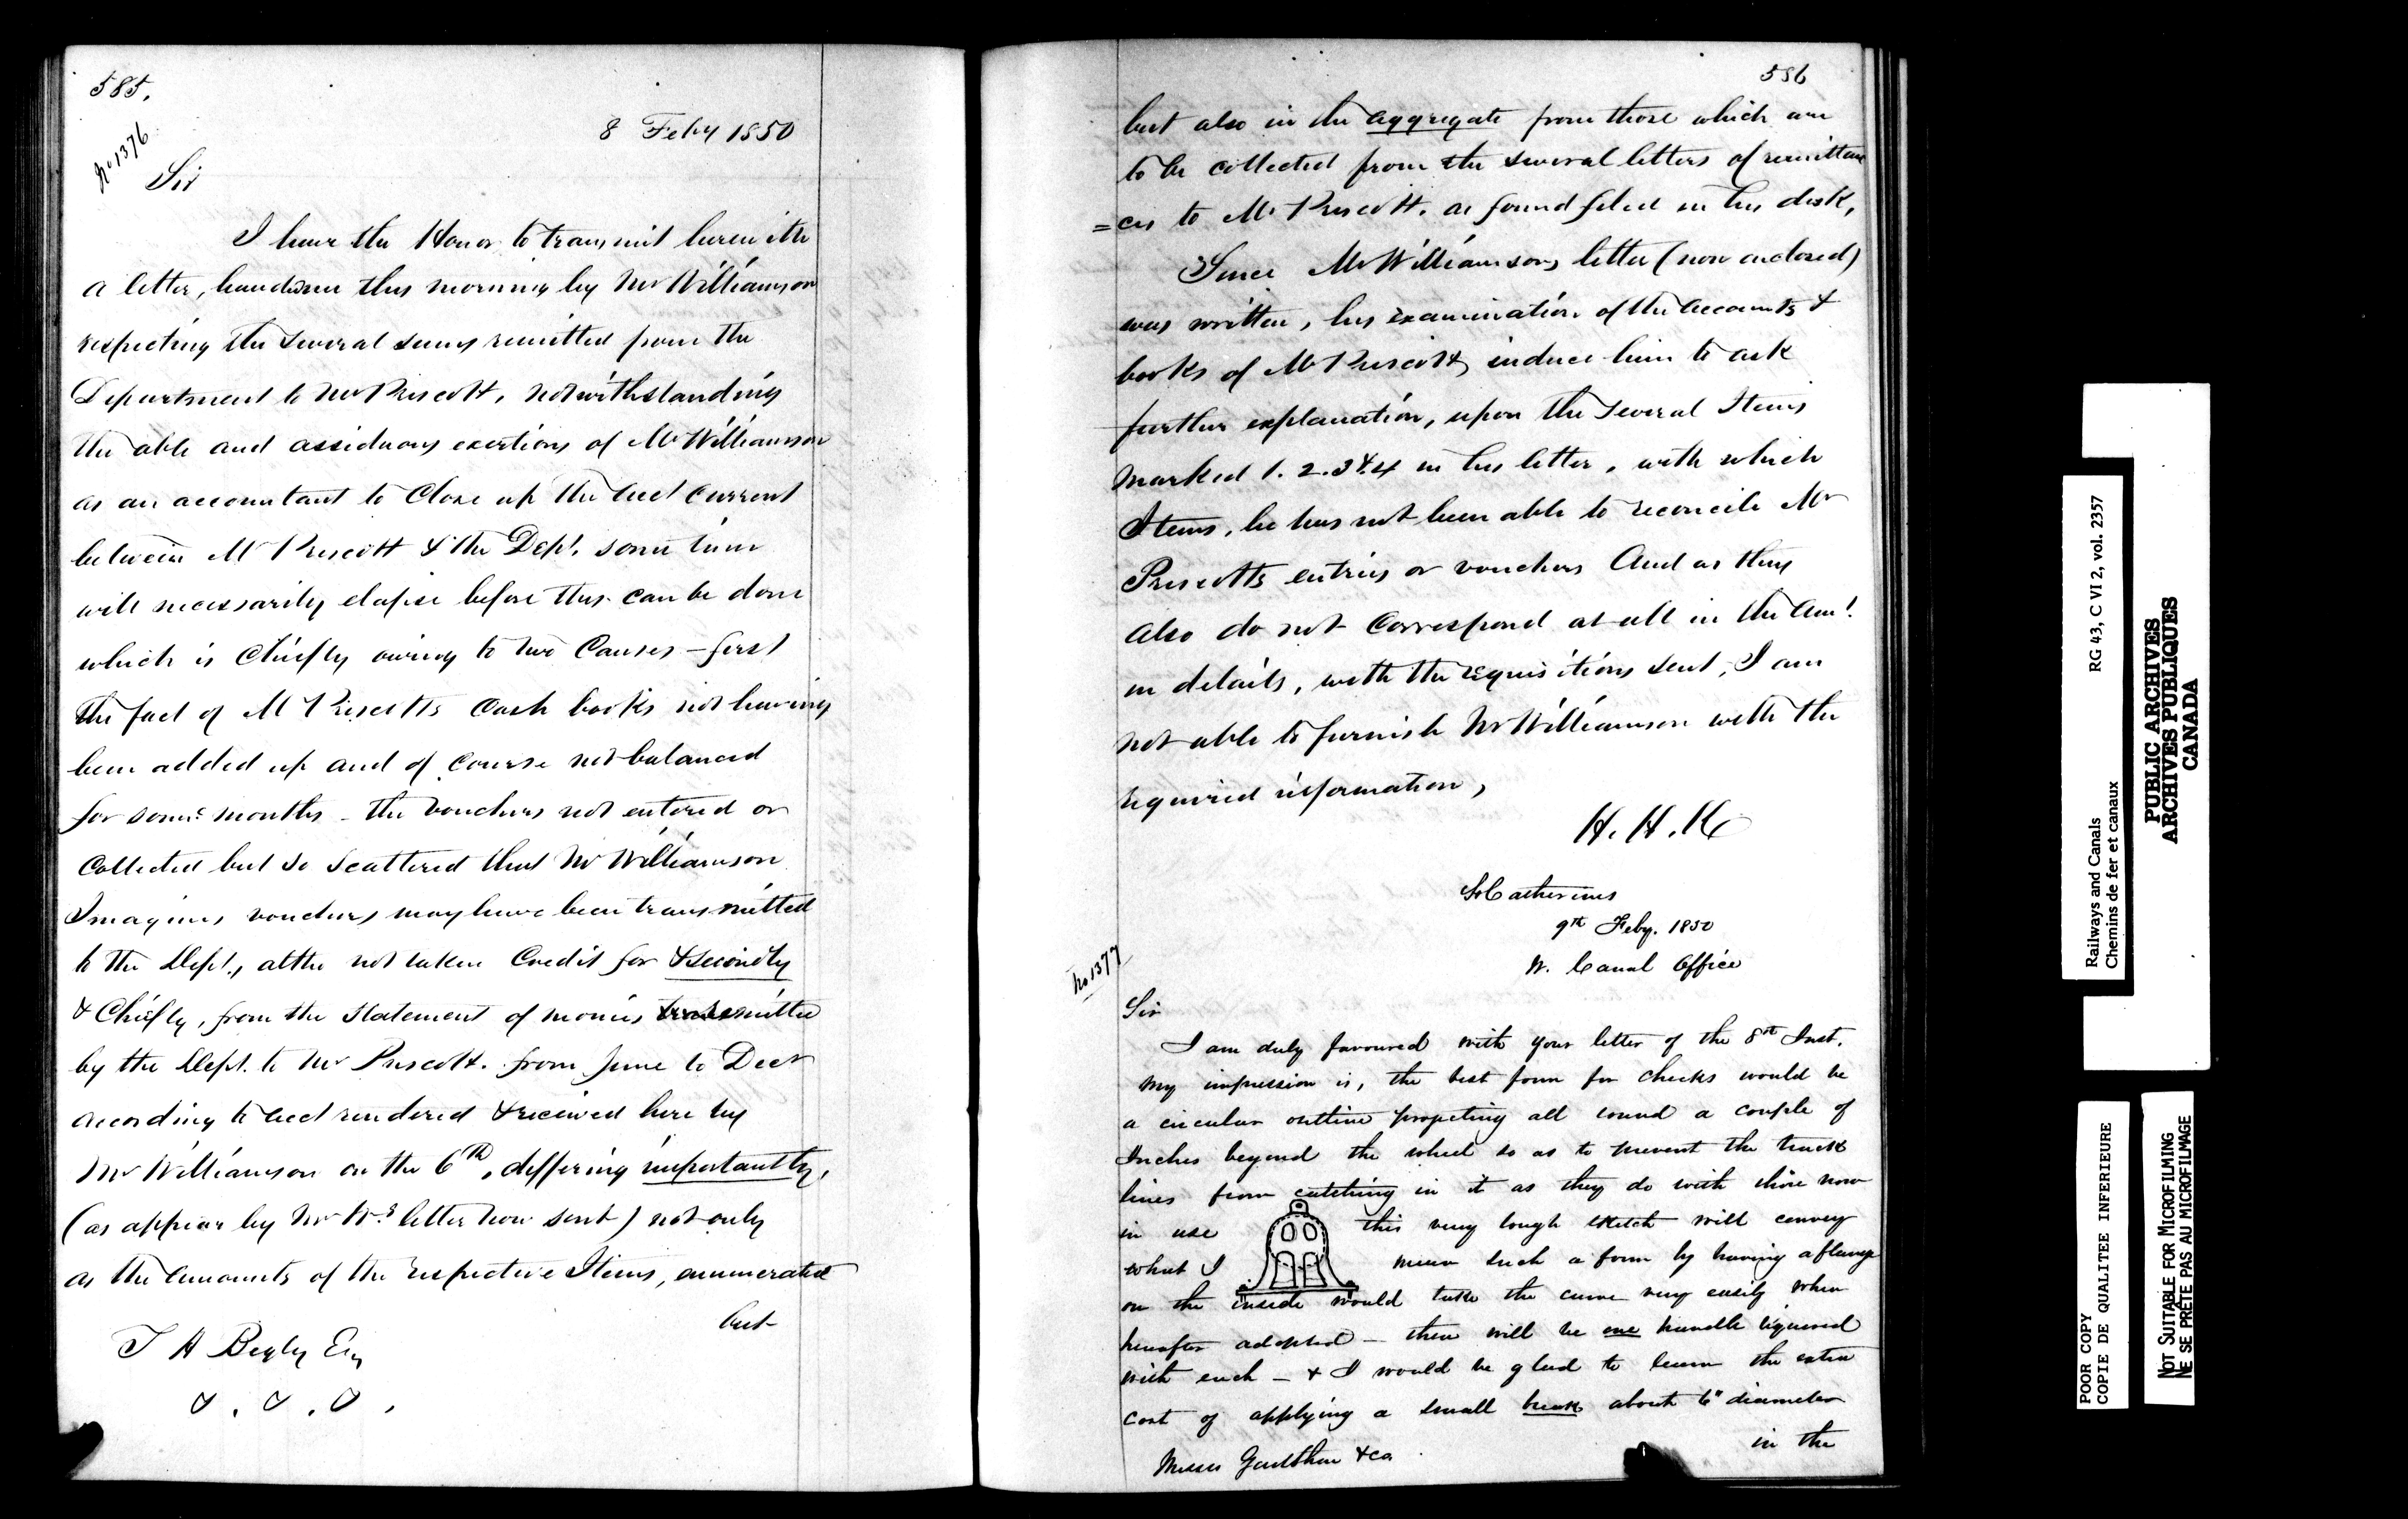 585.
8 Feby 1850
No 1376
Sir
I have the Honor to transmit herewith
a letter, handed me this morning by Mr Williamson
respecting the several sums remitted from the
Department to Mr Prescott, notwithstanding
the able and assiduous exertions of Mr Williamson
as an accountant to Close up the acct current
between Mr Prescott & the Dept. some time
will necessarily elapse before this can be done
which is Chiefly owing to two Causes – first
the fact of Mr Prescotts Cash books not having
been added up and of course not balanced
for some months – the vouchers not entered or
Collected but so Scattered that Mr Williamson
Imagines vouchers may have been transmitted
to the Dept., altho not taken Credit for & secondly
& Chiefly, from the Statement of monies
by the Dept. to Mr Prescott. from June to Decr
according to acct rendered & received here by
Mr Williamson on the 6th, differing importantly,
(as appear by Mr W.s letter now sent) not only
as the amounts of the respective Items, enumerated
but
T A Begly Esq
&. &. &.
586
but also in the aggregate from those which are
to be collected from the several letters of remittan
=ces to Mr Prescott. as found filed in his desk,
Since Mr Williamsons letter (now enclosed)
was written, his examination of the accounts &
books of Mr Prescott, induce him to ask
further explanation, upon the several Items
marked 1. 2. 3 & 4 in his letter, with which
Items, he has not been able to reconcile Mr
Prescotts entries or vouchers And as they
also do not Correspond at all in the Amt.
in details, with the requisitions sent, I am
not able to furnish Mr Williamson with the
required information,
H. H. K
St Catherines
9th Feby. 1850
W. Canal Office
No 1377
Sir
I am duly favoured with your letter of the 8th Inst.
My impression is, the best form for Chocks would be
a circular outline projecting all round a couple of
Inches beyond the wheel so as to prevent the track
lines from catching in it as they do with those now
in use this very rough sketch will convey
what I mean such a form by having a flange
on the inside would take the curve very easily when
hereafter adopted – there will be one handle required
with each – & I would be glad to learn the extra
cost of applying a small break about 6" diameter
in the
Messrs & Co
RG 43, C VI 2, vol. 2357
Railways and Canals
Chemins de fer et canaux
PUBLIC ARCHIVES
ARCHIVES PUBLIQUES
CANADA
POOR COPY
COPIE DE QUALITEE INFERIEURE
NOT SUITABLE FOR MICROFILMING
NE SE PRÊTE PAS AU MICROFILMAGE